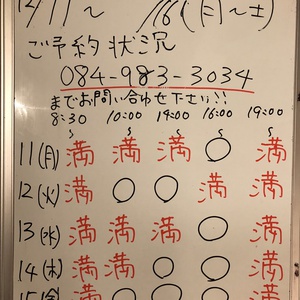 12/11〜 /16(月〜土)
ご予約状況
084-983-3034
までお問い合わせ下さい!!
8:30 10:00 14:00 16:00 19:00
〜 〜 〜 〜 〜
11(月) 満 満 満 ○ 満
12(火) 満 ○ ○ 満 満
13(水) 満 満 満 ○ 満
14(木) 満 満 ○ ○ 満
15(金) 満 ○ ○ ○ 満